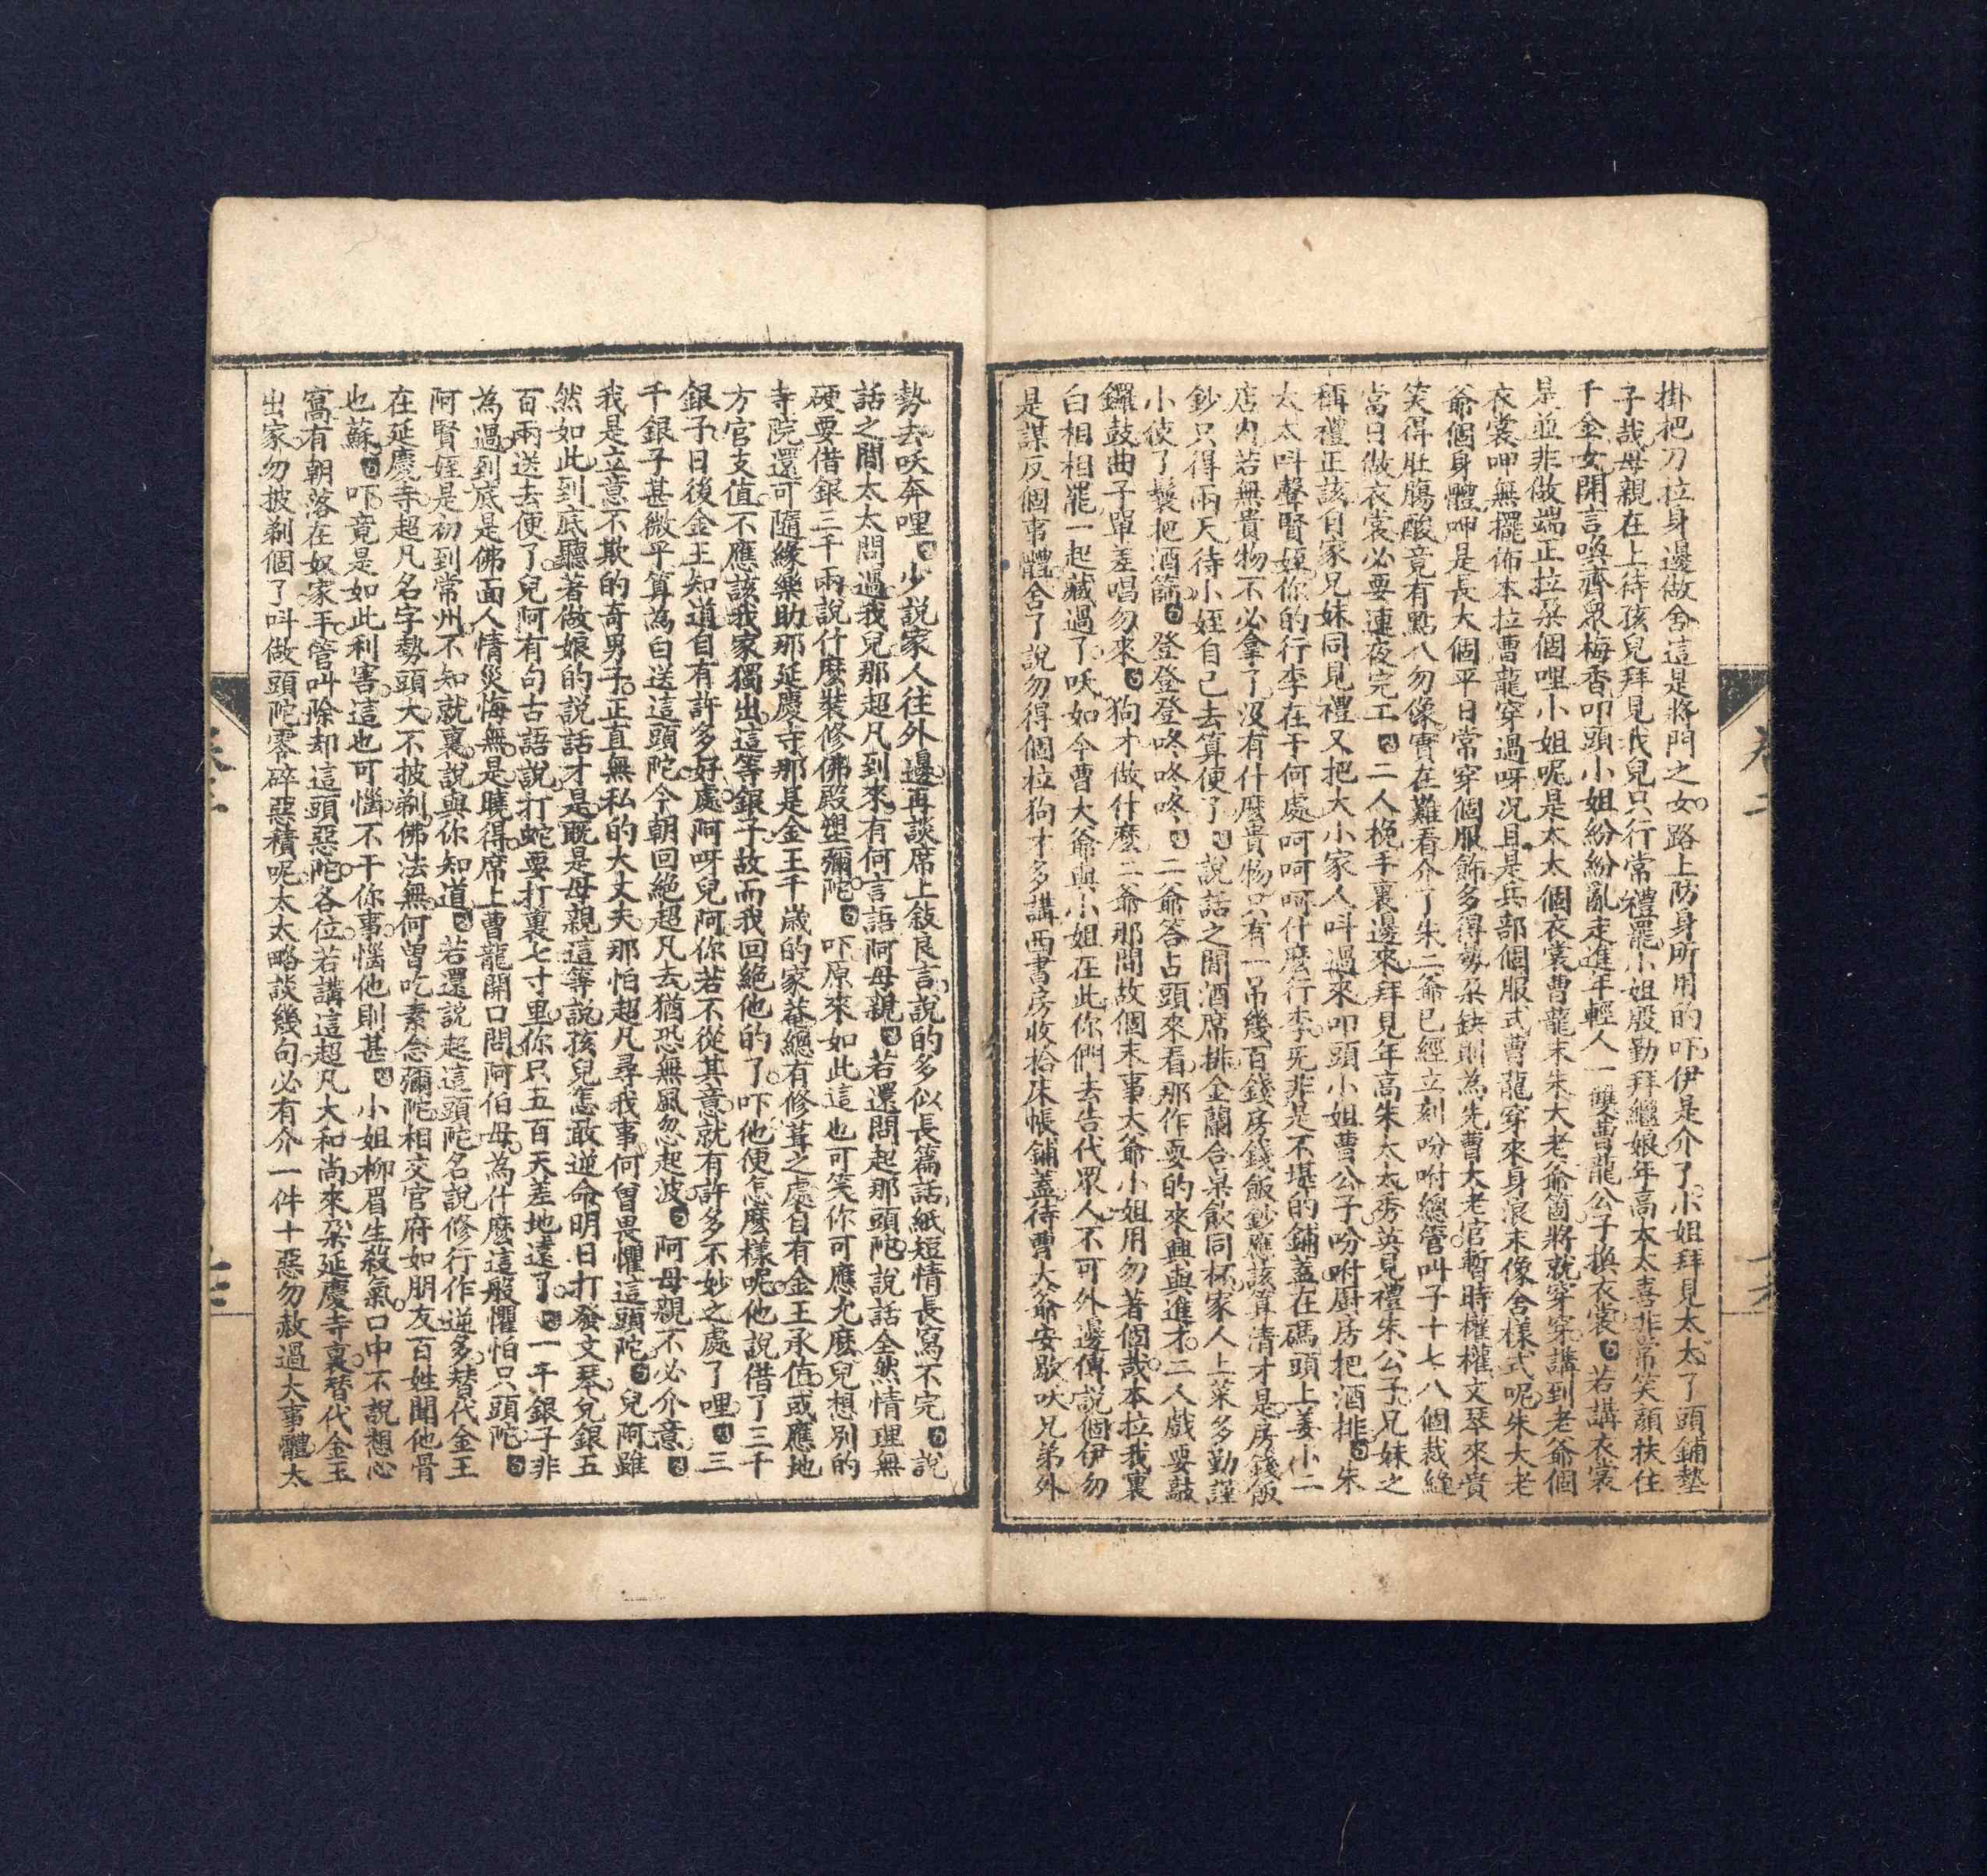 掛把刀拉身邊做舍這是將門之女路上防身所用的吓伊是介了小姐拜見太太了頭鋪墊
子哉母親在上待孩兒拜見我兒只行常禮罷小姐殷勤拜繼娘年高太太喜非常笑顏扶住
千金女開言喚齊眾梅香叩頭小姐紛紛亂走進年輕人一雙曹龍公子換衣裳 若講衣裳
是並非做端正拉朵個哩小姐呢是太太個衣裳曹龍末朱大老爺箇將就穿穿講到老爺個
衣裳呷無擺佈本拉曹龍穿過呀况且是兵部個服式曹龍穿來身浪末像舍樣式呢朱大老
爺個身體呷是長大個平日常穿個服飾多得勢朵缺則為先曹大老官暫時權權文琴來賞
笑得肚腸酸竟有點八勿像實在難看介了朱二爺已經立刻吩咐總管叫子十七八個裁縫
當日做衣裳必要連夜完工 二人挽手裏邊來拜見年高朱太太秀英見禮朱公子兄妹之
稱禮正該自家兄妹同見禮又把大小家人叫過來叩頭小姐曹公子吩咐廚房把酒排 朱
太太叫聲賢姪你的行李在于何處呵呵呵什麼行李旡非是不堪的鋪蓋在碼頭上姜小二
店內若無貴物不必拿了沒有什麼貴物只有一吊幾百錢房錢飯鈔應該算清才是房錢飯
鈔只得兩天待小姪自己去算便了 說話之間酒席排金蘭合桌飲同杯家人上菜多勤謹
小使了鬟把酒篩 登登登咚咚咚 二爺答占頭來看那作耍的來興與進才二人戲要敲
鑼鼓曲子單差唱勿來 狗才做什麼二爺那間故個末事大爺小姐用勿著個哉本拉我裏
白相相罷一起藏過了吷如今曹大爺與小姐在此你們去告代眾人不可外邊傳說個伊勿
是謀反個事體舍了說勿得個拉狗才多講西書房收拾床帳鋪蓋待曹大爺安歇吷兄弟外
勢去吷奔哩 少說家人往外邊再談席上敍良言說的多似長篇話紙短情長寫不完 說
話之間太太問過我兒那超凡到來有何言語阿母親 若還問起那頭陀說話全然情理無
硬要借銀三千兩說什麼裝修佛殿塑彌陀 吓原來如此這也可笑你可應允麼兒想別的
寺院還可隨緣樂助那延慶寺那是金王千歲的家菴總有修葺之處自有金王承值或應地
方官支值不應該我家獨出這等銀子故而我回絕他的了吓他便怎麼樣呢他說借了三千
銀子日後金王知道自有許多好處阿呀兒阿你若不從其意就有許多不妙之處了哩 三
千銀子甚微乎算為白送這頭陀今朝回絕超凡去猶恐無風忽起波 阿母親不必介意
我是立意不欺的奇男子正直無私的大丈夫那怕超凡尋我事何曾畏懼這頭陀 兒阿雖
然如此到底聽著做娘的說話才是旣是母親這等說孩兒怎敢逆命明日打發文琴兌銀五
百兩送去便了兒阿有句古語說打蛇要打裏七寸里你只五百天差地遠了 一千銀子非
為過到底是佛面人情災悔無是曉得席上曹龍開口問阿伯母為什麼這般懼怕只頭陀
阿賢姪是初到常州不知就裏說與你知道 若還說起這頭陀名說修行作逆多替代金王
在延慶寺超凡名字勢頭大不披剃佛法無何曾吃素念彌陀相交官府如朋友百姓聞他骨
也蘇 吓竟是如此利害這也可惱不干你事惱他則甚 小姐柳眉生殺氣口中不說想心
窩有朝落在奴家手管叫除却這頭惡陀各位若講這超凡大和尚來朵延慶寺裏替代金王
出家勿披剃個了叫做頭陀零碎惡積呢太太略談幾句必有介一件十惡勿赦過大事體太